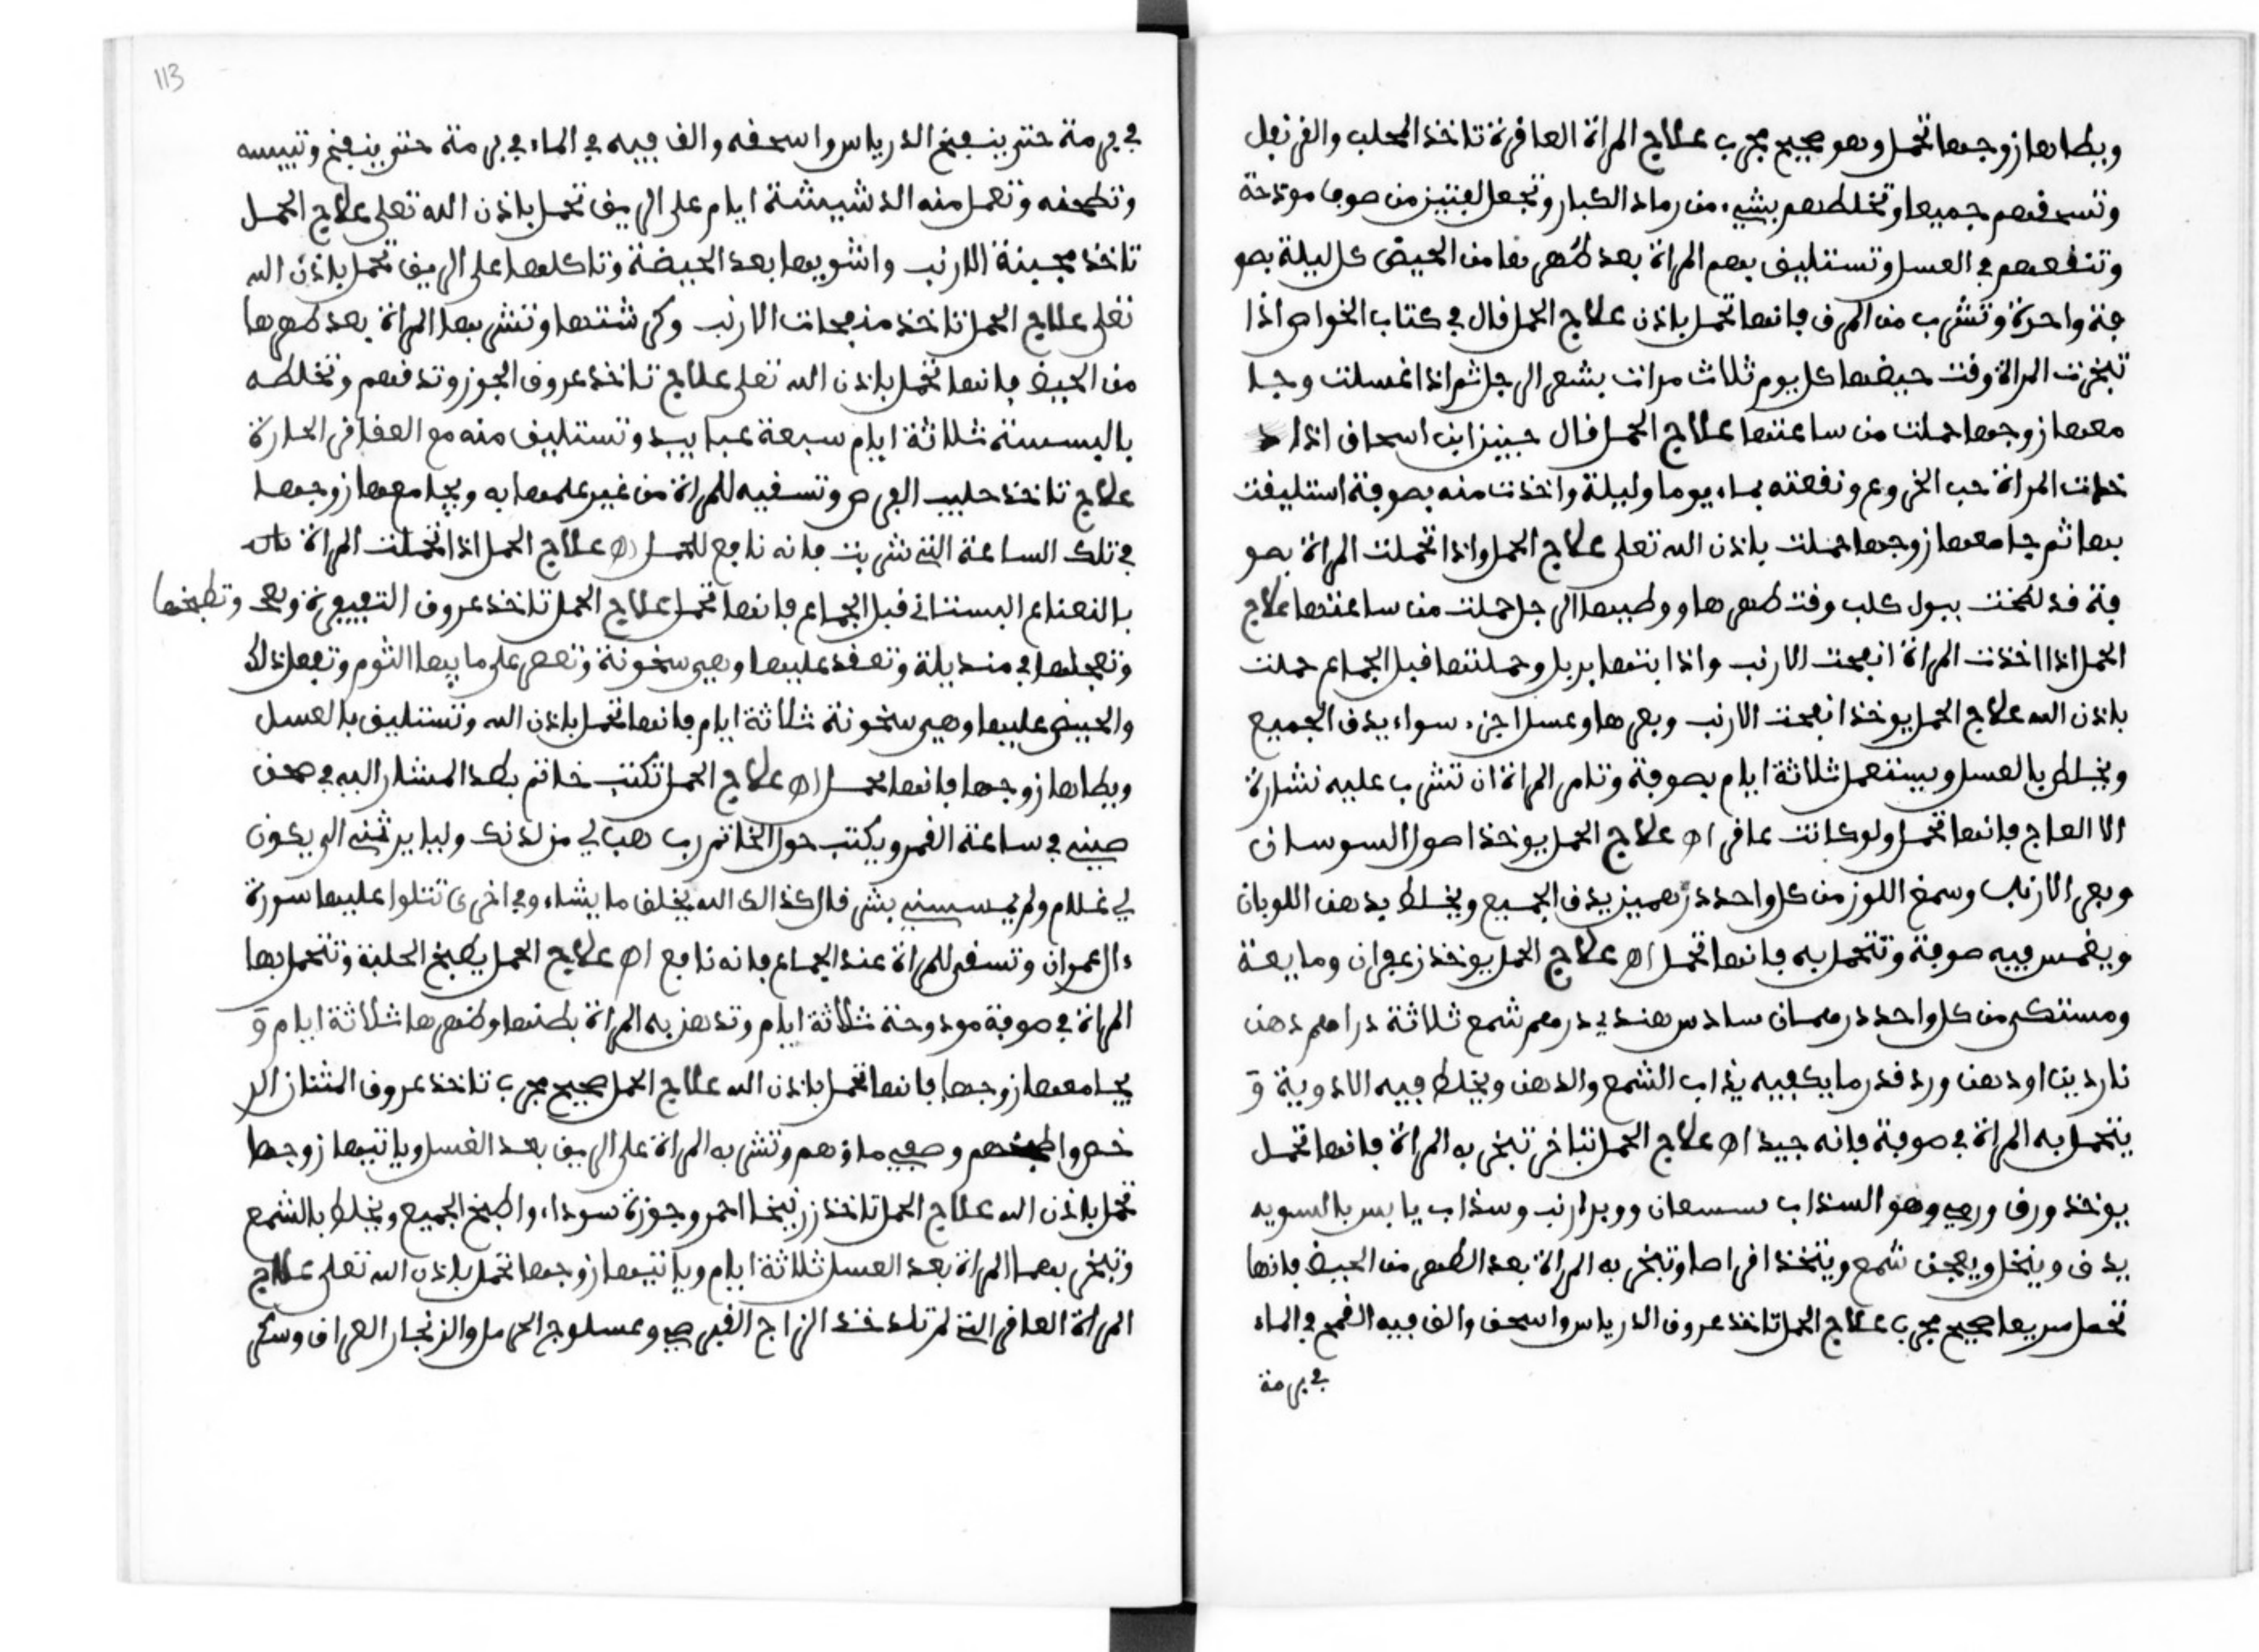 ويطاها زوجها تحمل وهو صحيح مجرب علاج المراة العافرة تاخذ المحلب والقرنفل
وتسحقهم جميعا وتخلطهم بشيء من رماد الكبار وتجعل من صوفا موذحة
وتنقعهم في العسل وتستليف بهم المراة بعد طهرها من الحيض كل ليلة بصو
فة واحرة وتشرب من المرق فانها تحمل باذن علاج الحمل قال في كتاب الخواص اذا
تبخرت المراة وقت حيضها كل يوم ثلاث مرات بشعر الرجل ثم اذا اغسلت وجا
معها زوجها حملت من ساعتها علاج الحمل قال حنين ابن اسحاق اذا
خذت المراة حب الخروع ونقعته بماء يوما وليلة واخذت منه بصوفة استليفت
بها ثم جامعها زوجها حملت باذن الله تعلى علاج الحمل واذا تحملت المراة بصو
فة قد لطخت ببول كلب وقت طهرها ووطيها الرجل حملت من ساعتها علاج
الحمل اذا اخذت المراة انفحت الارنب واذابتها بربل وحملتها قبل الجماع حملت
باذن الله علاج الحمل يوخذ انفحت الارنب وبعرها وعسل اجزء سواء يدق الجميع
ويخلط بالعسل ويستعمل ثلاثة ايام بصوفة وتامر المراة ان تشرب عليه نشارة
الا العاج فانها تحمل ولو كانت عاقر اه علاج الحمل يوخذ اصول السوسان
وبعر الارنب وسمغ اللوز من كل واحد درهمين يدق الجميع ويخلط بدهن اللوبان
ويغمس فيه صوفة وتتحمل به فانها تحمل اه علاج الحمل يوخذ زعفران ومايعة
ومستكى من كل واحد درهمان سادس هندي درهم شمع ثلاثة دراهم دهن
ناردين او دهن ورد قدر ما يكفيه يذاب الشمع والدهن ويخلط فيه الادوية و
يتحمل به المراة في صوفة فانه جيد اه علاج الحمل تبخر به المراة فانها تحمل
يوخذ ورق وهو السذاب ووبر ارنب وسذاب يابس بالسويه
يدق وينخل ويعجن شمع ويتخذ اقراصا وتبخر به المراة بعد الطهر من الحيض فانها
تحمل سريعا صحيح مجرب علاج الحمل تاخذ عروق الدرياس واسحق والق فيه القمح في الماء
في برمة
113
في برمة حتى ينفخ الدرياس واسحقه والق فيه في الماء في برمة حتى ينفخ وتيبسه
وتطحنه وتعمل منه الدشيشة ايام على الريق تحمل باذن الله تعلى علاج الحمل
تاخذ مجبنة الارنب واشويها بعد الحيضة وتاكلها على الريق تحمل باذن الله
تعلى علاج الحمل تاخذ الارنب وكرشتها وتشربها المراة بعد طهرها
من الحيض فانها تحمل باذن الله تعلى علاج تاخذ عروق الجوز وتدقهم وتخلطه
ثلاثة ايام سبعة وتستليف منه مع العقاقر الحارة
علاج تاخذ حليب الفرص وتسقيه للمراة من غير علمها به ويجامعها زوجها
في تلك الساعة التي شربت فانه نافع للحمل اه علاج الحمل اذا تحملت المراة
بالنعناع البستاني قبل الجماع فانها تحمل علاج الحمل تاخذ عروق وتطبخها
وتجعلها في منديلة وتعقد عليها وهي سخونة وتعصر على ما فيها الثوم وتفعل ذلك
والحيض عليها وهي سخونة ثلاثة ايام فانها تحمل باذن الله وتستليف بالعسل
ويطاها زوجها فانها تحمل اه علاج الحمل تكتب خاتم بطد المشار اليه في صحن
صيني في ساعة القمر ويكتب حول الخاتم رب هب لي من لدنك وليا يرثني الى يكون
لي غلام ولم يمسسني بشر قال كذالك الله يخلق ما يشاء وفي اخرى تتلوا عليها سورة
ءال عمران وتسقى للمراة عند الجماع فانه نافع اه علاج الحمل يطبخ الحلبة وتتحمل بها
المراة في صوفة مودوحة ثلاثة ايام وتدهن به المراة بطنها وظهرها ثلاثة ايام و
يجامعها زوجها فانها تحمل باذن الله علاج الحمل صحيح مجرب تاخذ عروق المثنان الر
خص واطبخهم وصفي ماؤهم وتشربه المراة على الريق بعد الغسل وياتيها زوجها
تحمل باذن الله علاج الحمل تاخذ زرنيخا احمر وجوزة سوداء واطبخ الجميع ويخلط بالشمع
وتبخر بهما المراة بعد الغسل ثلاثة ايام وياتيها زوجها تحمل باذن الله تعلى علاج
المراة العاقر التي لم تلد خذ الزاج القبرصي وعسلوج الحرمل والزنجار العراق وسكر